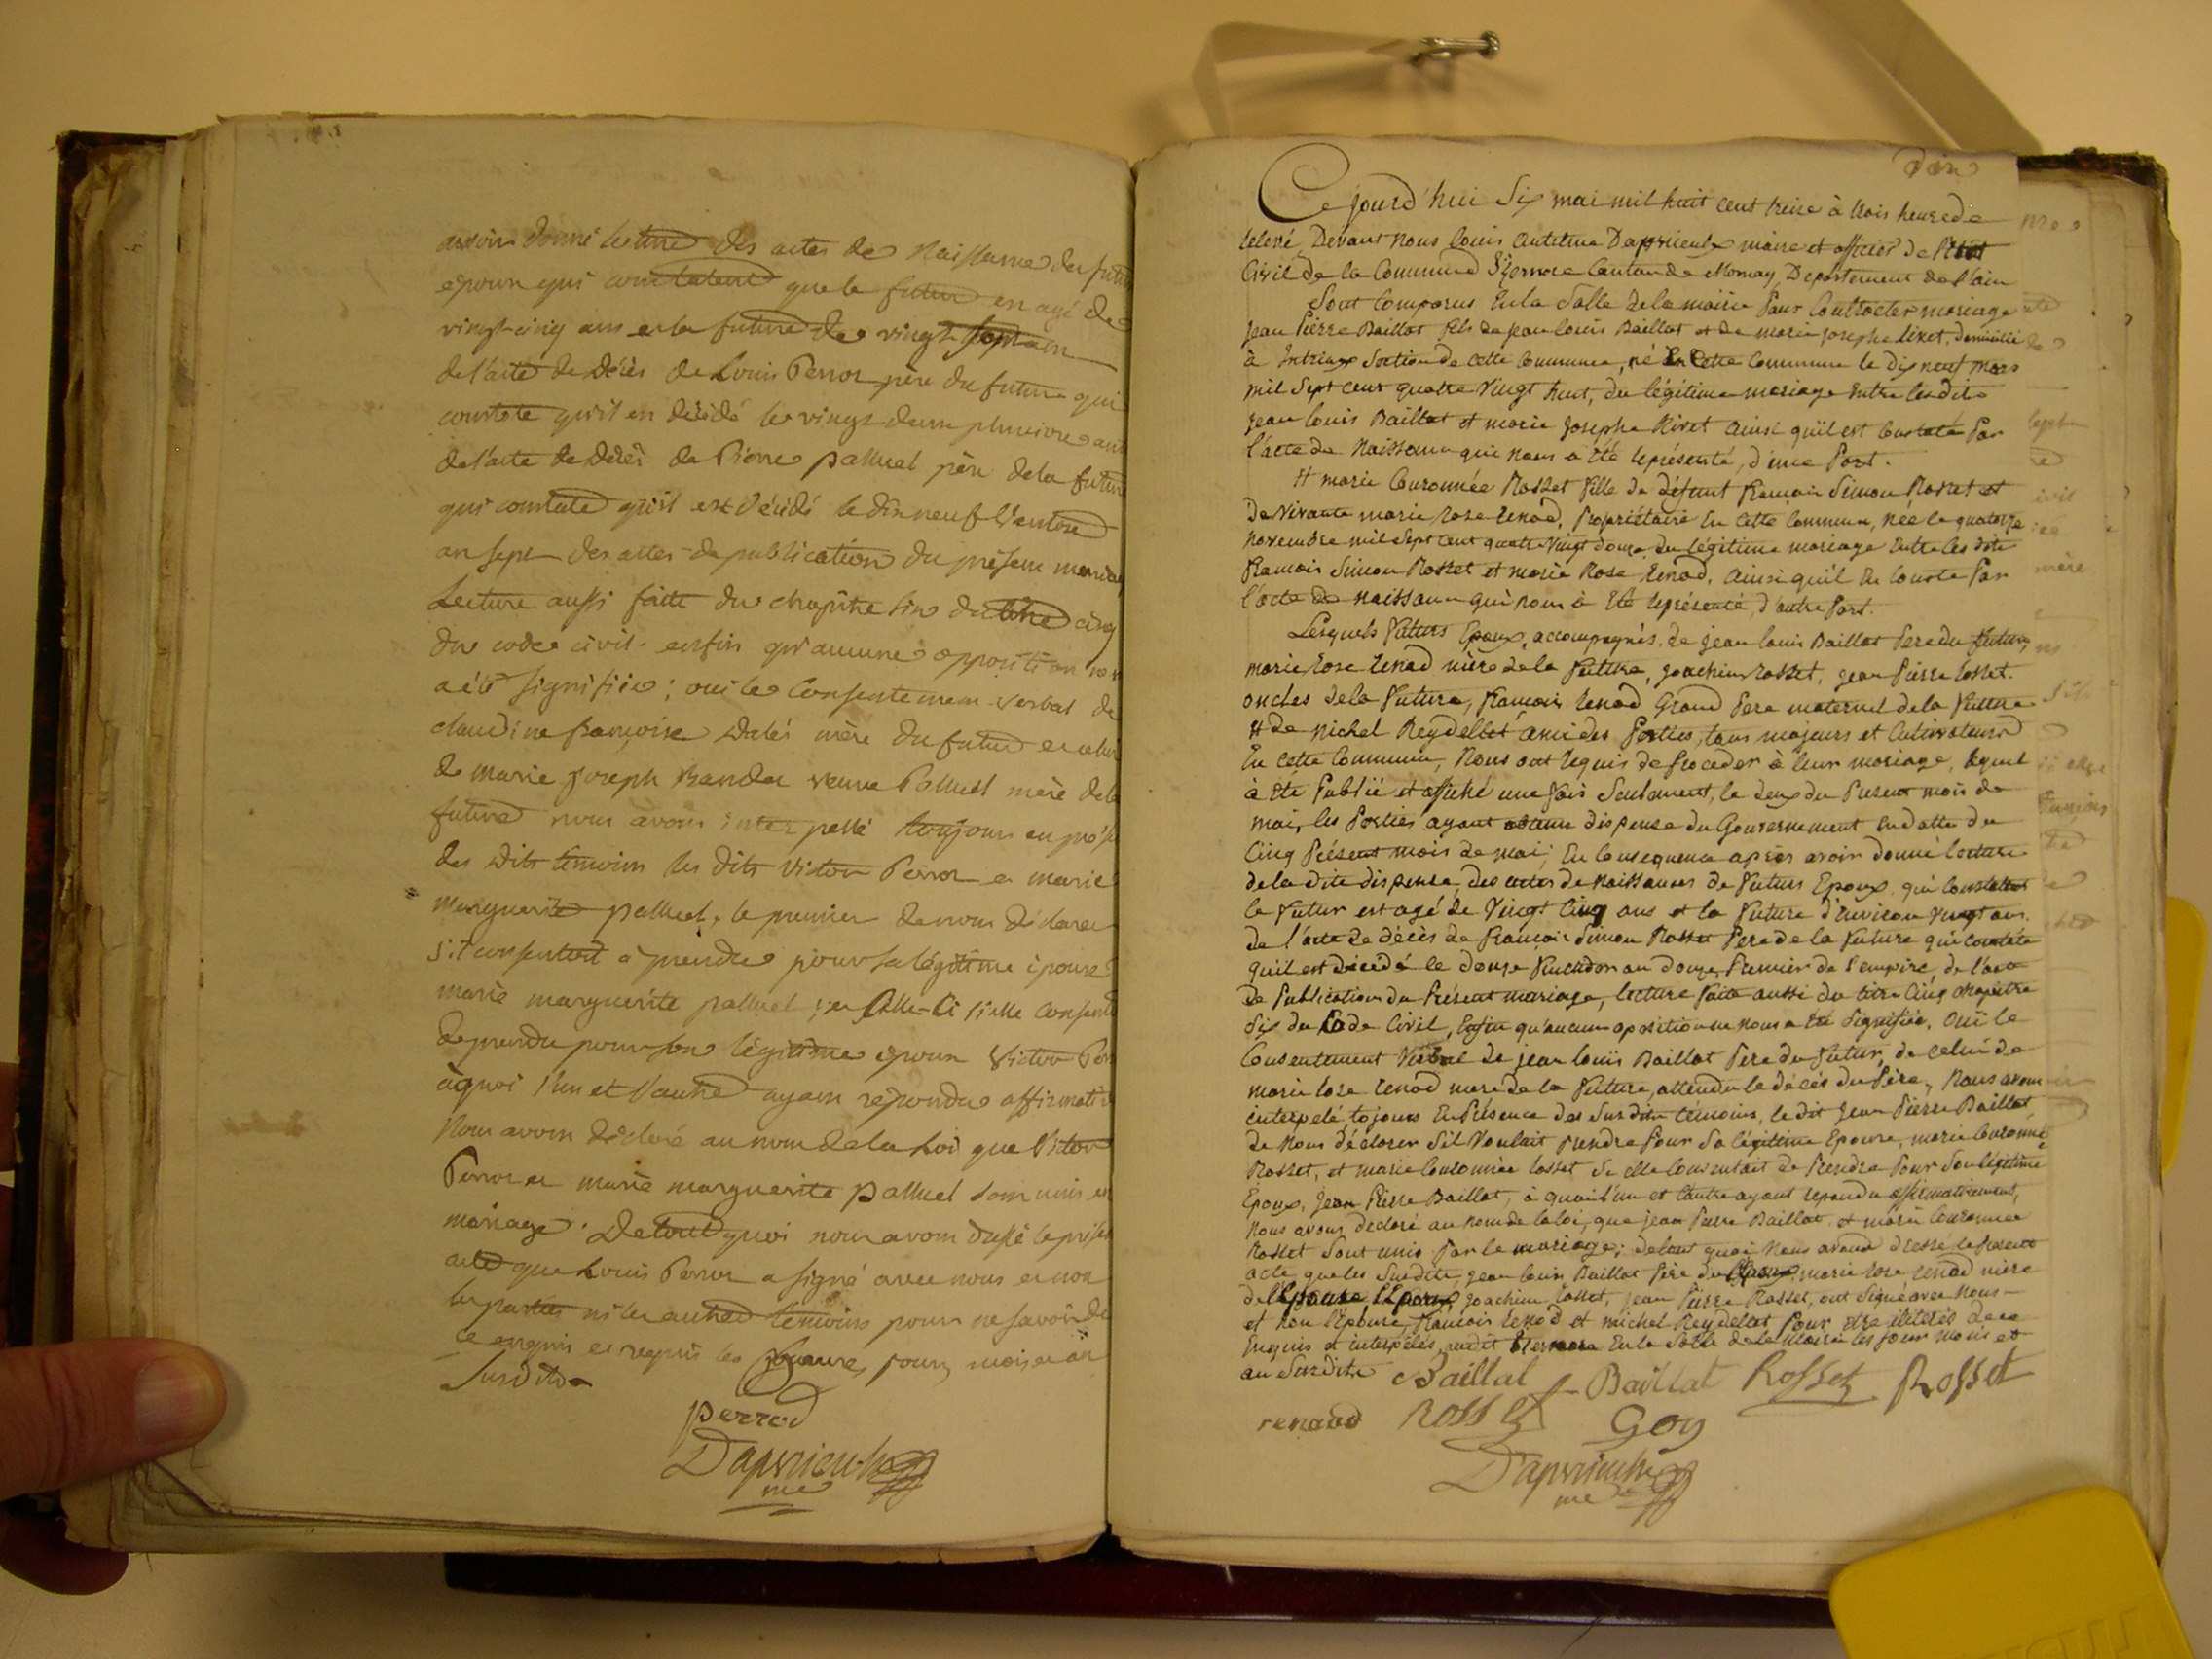 avoir donné lecture des actes de Naissance des futurs
epoux qui constatent que le futur en agé de
vingt-cinq ans et la future de vingt sept ans
de l'acte de décès de Louis Perrot père du futur qui
constate qu'il en décédé le vingt deux pluviose an
de l'acte de décès de Pierre palluel père de la future
qui constate qu'il est décédé le dix neuf Ventose
an sept des actes de publication du présent mariage
Lecture aussi faite du chapitre six du titre cinq
du code civil. enfin qu'aucune opposition
a été signifiée; oui le Consentement verbal de
claudine françoise mère du futur et celui
de marie joseph veuve Palluel mère de la
future nous avons interpellé toujours en prése
des dits temoins les dits victor Perrot et marie
marguerite palluel, le premier de nous déclarer
s'il consentoit à prendre pour sa légitime épouse
marie marguerite palluel; et Celle-Ci si elle consent
de prendre pour son légitime epoux Victor Per
à quoi l'un et l'autre ayant répondu affirmativ
Nous avons déclaré au nom de la Loi que Victor
Perrot et marie marguerite palluel sont unis en
mariage. De tout quoi nous avons dressé le présent
acte que Louis Perrot a signé avec nous et non
les parties ni les autres temoins pour ne savoir de
ce enquis et requis les jour, mois et an
Susdits
perrod
Daprieulx
me
Ce jourd'hui Six mai mil huit cent treize à trois heure de
relevé, Devant nous Louis Antelme Daprieulx maire et officier de l'Etat
Civil de la Commune d'izernore Canton de Mornay, Département de l'ain
Sont Comparus En la Salle de la mairie Pour Contracter mariage
Jean Pierre Baillat fils de Jean Louis Baillat et de marie josephe Nivet, domicilié
à Intriax Section de cette Commune, né En Cette Commune le dix neuf mars
mil Sept cent quatre Vingt huit, du légitime mariage Entre lesdits
Jean Louis Baillat et marie Josephe Nivet ainsi qu'il est Constaté Par
l'acte de Naissance qui nous a été représenté, d'une Part.
Et marie Couronnée Rosset fille de défunt François Simon Rosset et
de Vivante marie rose Renod, Propriétaire En Cette Commune, née le quatorze
novembre mil Sept cent quatre Vingt douze, du légitime mariage Entre les dits
François Simon Rosset et marie Rose Renod, ainsi qu'il En Conste Par
l'acte de Naissance qui nous à Eté représenté, d'autre Part.
Lesquels Futurs Epoux, accompagnés de Jean Louis Baillat Pere du Futur,
marie rose Renod mère de la Future, Joachim Rosset, Jean Pierre Rosset.
oncles de la Future, François Renod Grand Pere maternel de la Future
Et de Michel Reydellet ami des Parties, tous majeurs et Cultivateurs
En cette Commune, Nous ont requis de Proceder à leur mariage, lequel
à Eté Publié et affiché une fois Seulement, le deux du Present mois de
mai, les Parties ayant obtenu dispense du Gouvernement En datte du
Cinq Présent mois de mai; En Consequence après avoir donné lecture
de la dite dispense, des actes de Naissances de Futurs Epoux qui Constatent
le Futur est agé de Vingt Cinq ans et la Future d'Environ Vingt ans.
de l'acte de décès de François Simon Rosset Pere de la Future qui constate
qu'il est décédé le douze Fructidor an douze, Premier de l'empire, de l'acte
de Publication du Présent mariage, lecture Faite aussi du titre Cinq chapitre
Six du Code Civil, Enfin qu'aucune oposition ne nous a Eté Signifiée, Ouï le
Consentement Verbal de Jean Louis Baillat Pere du Futur, de celui de
marie rose Renod mere de la Future, attendu le décès du Père, Nous avons
interpelé, tojours En Présence des Susdits témoins, le dit Jean Pierre Baillat
de Nous déclarer S'il Voulait Prendre Pour Sa légitime Epouse, marie Couronnée
Rosset, et marie Couronnée Rosset Si elle Consentait de Prendre Pour Son légitime
Epoux, Jean Pierre Baillat, à quoi l'un et l'autre ayant repondu affirmativement,
Nous avons declaré au Nom de la loi, que Jean Pierre Baillat et marie Couronnée
Rosset Sont unis Par le mariage; de tout quoi Nous avons dressé le Present
acte que les Susdits, Jean Louis Baillat Père du marie rose Renod mère
de l'Epouse L'Epoux, Joachim Rosset, Jean Pierre Rosset, ont Signé avec Nous
et Non l'Epouse, François Renod et Michel Reydellet Pour être iliterés de ce
Enquis et interpelés, audit Izernore En la Salle de la Mairie les Jour Mois et
an Susdits Baillat Baillat Rosset Rosset
renaod Rosset Goy
Daprieulx
me